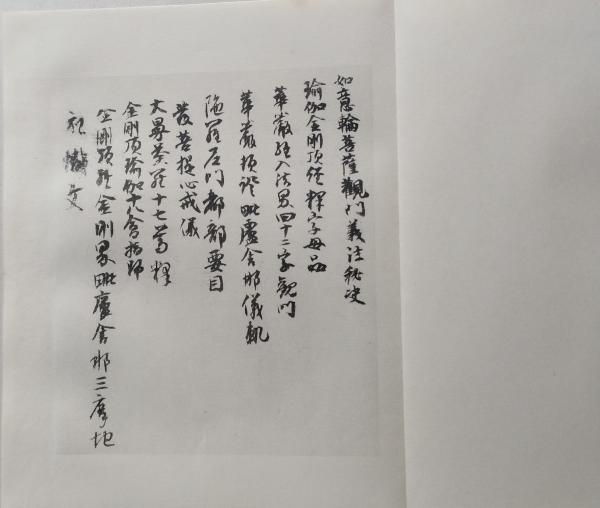 如意輪菩薩觀門義注秘决
瑜伽金剛頂經釋字母品
華嚴經入法界四十二字觀門
華嚴頓證毗盧舍那儀軌
陁羅尼門都部要目
發菩提心戒儀
大曼荼羅十七尊釋
金剛頂瑜伽十八會指歸
金剛頂經金剛界毗盧舍那三摩地
礼懺文